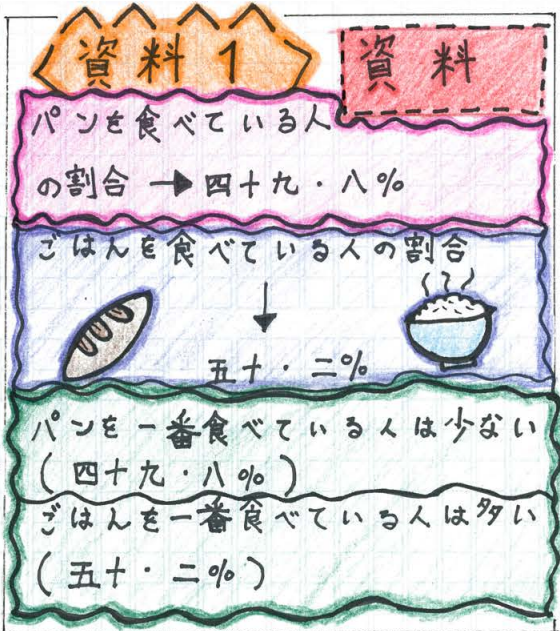 資料1
資料
パンを食べている人
の割合 → 四十九・八%
ごはんを食べている人の割合
↓
五十・二%
パンを一番食べている人は少ない
(四十九・八%)
ごはんを一番食べている人は多い
(五十・二%)